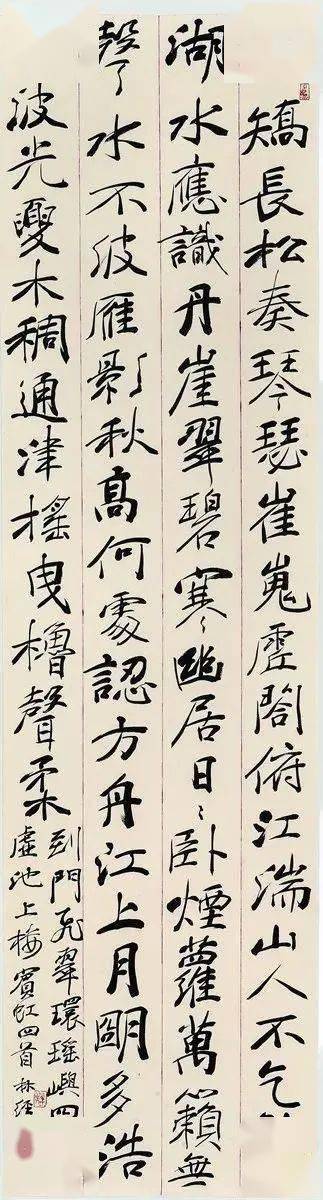 矯長松奏琴瑟崔嵬虛閣俯江湍山人不乞
湖水應識丹崖翠碧寒幽居日〻臥煙蘿萬籟無
聲水不波雁影秋高何處認方舟江上月明多浩
波光夐木稠通津搖曳櫓聲柔
到門飛翠環瑤嶼四
虛池上梅賓虹四首